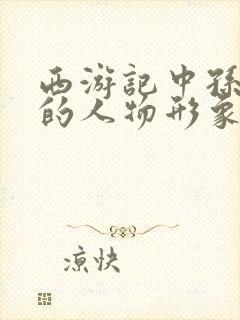 西游记中孙
的人物形象
凉快